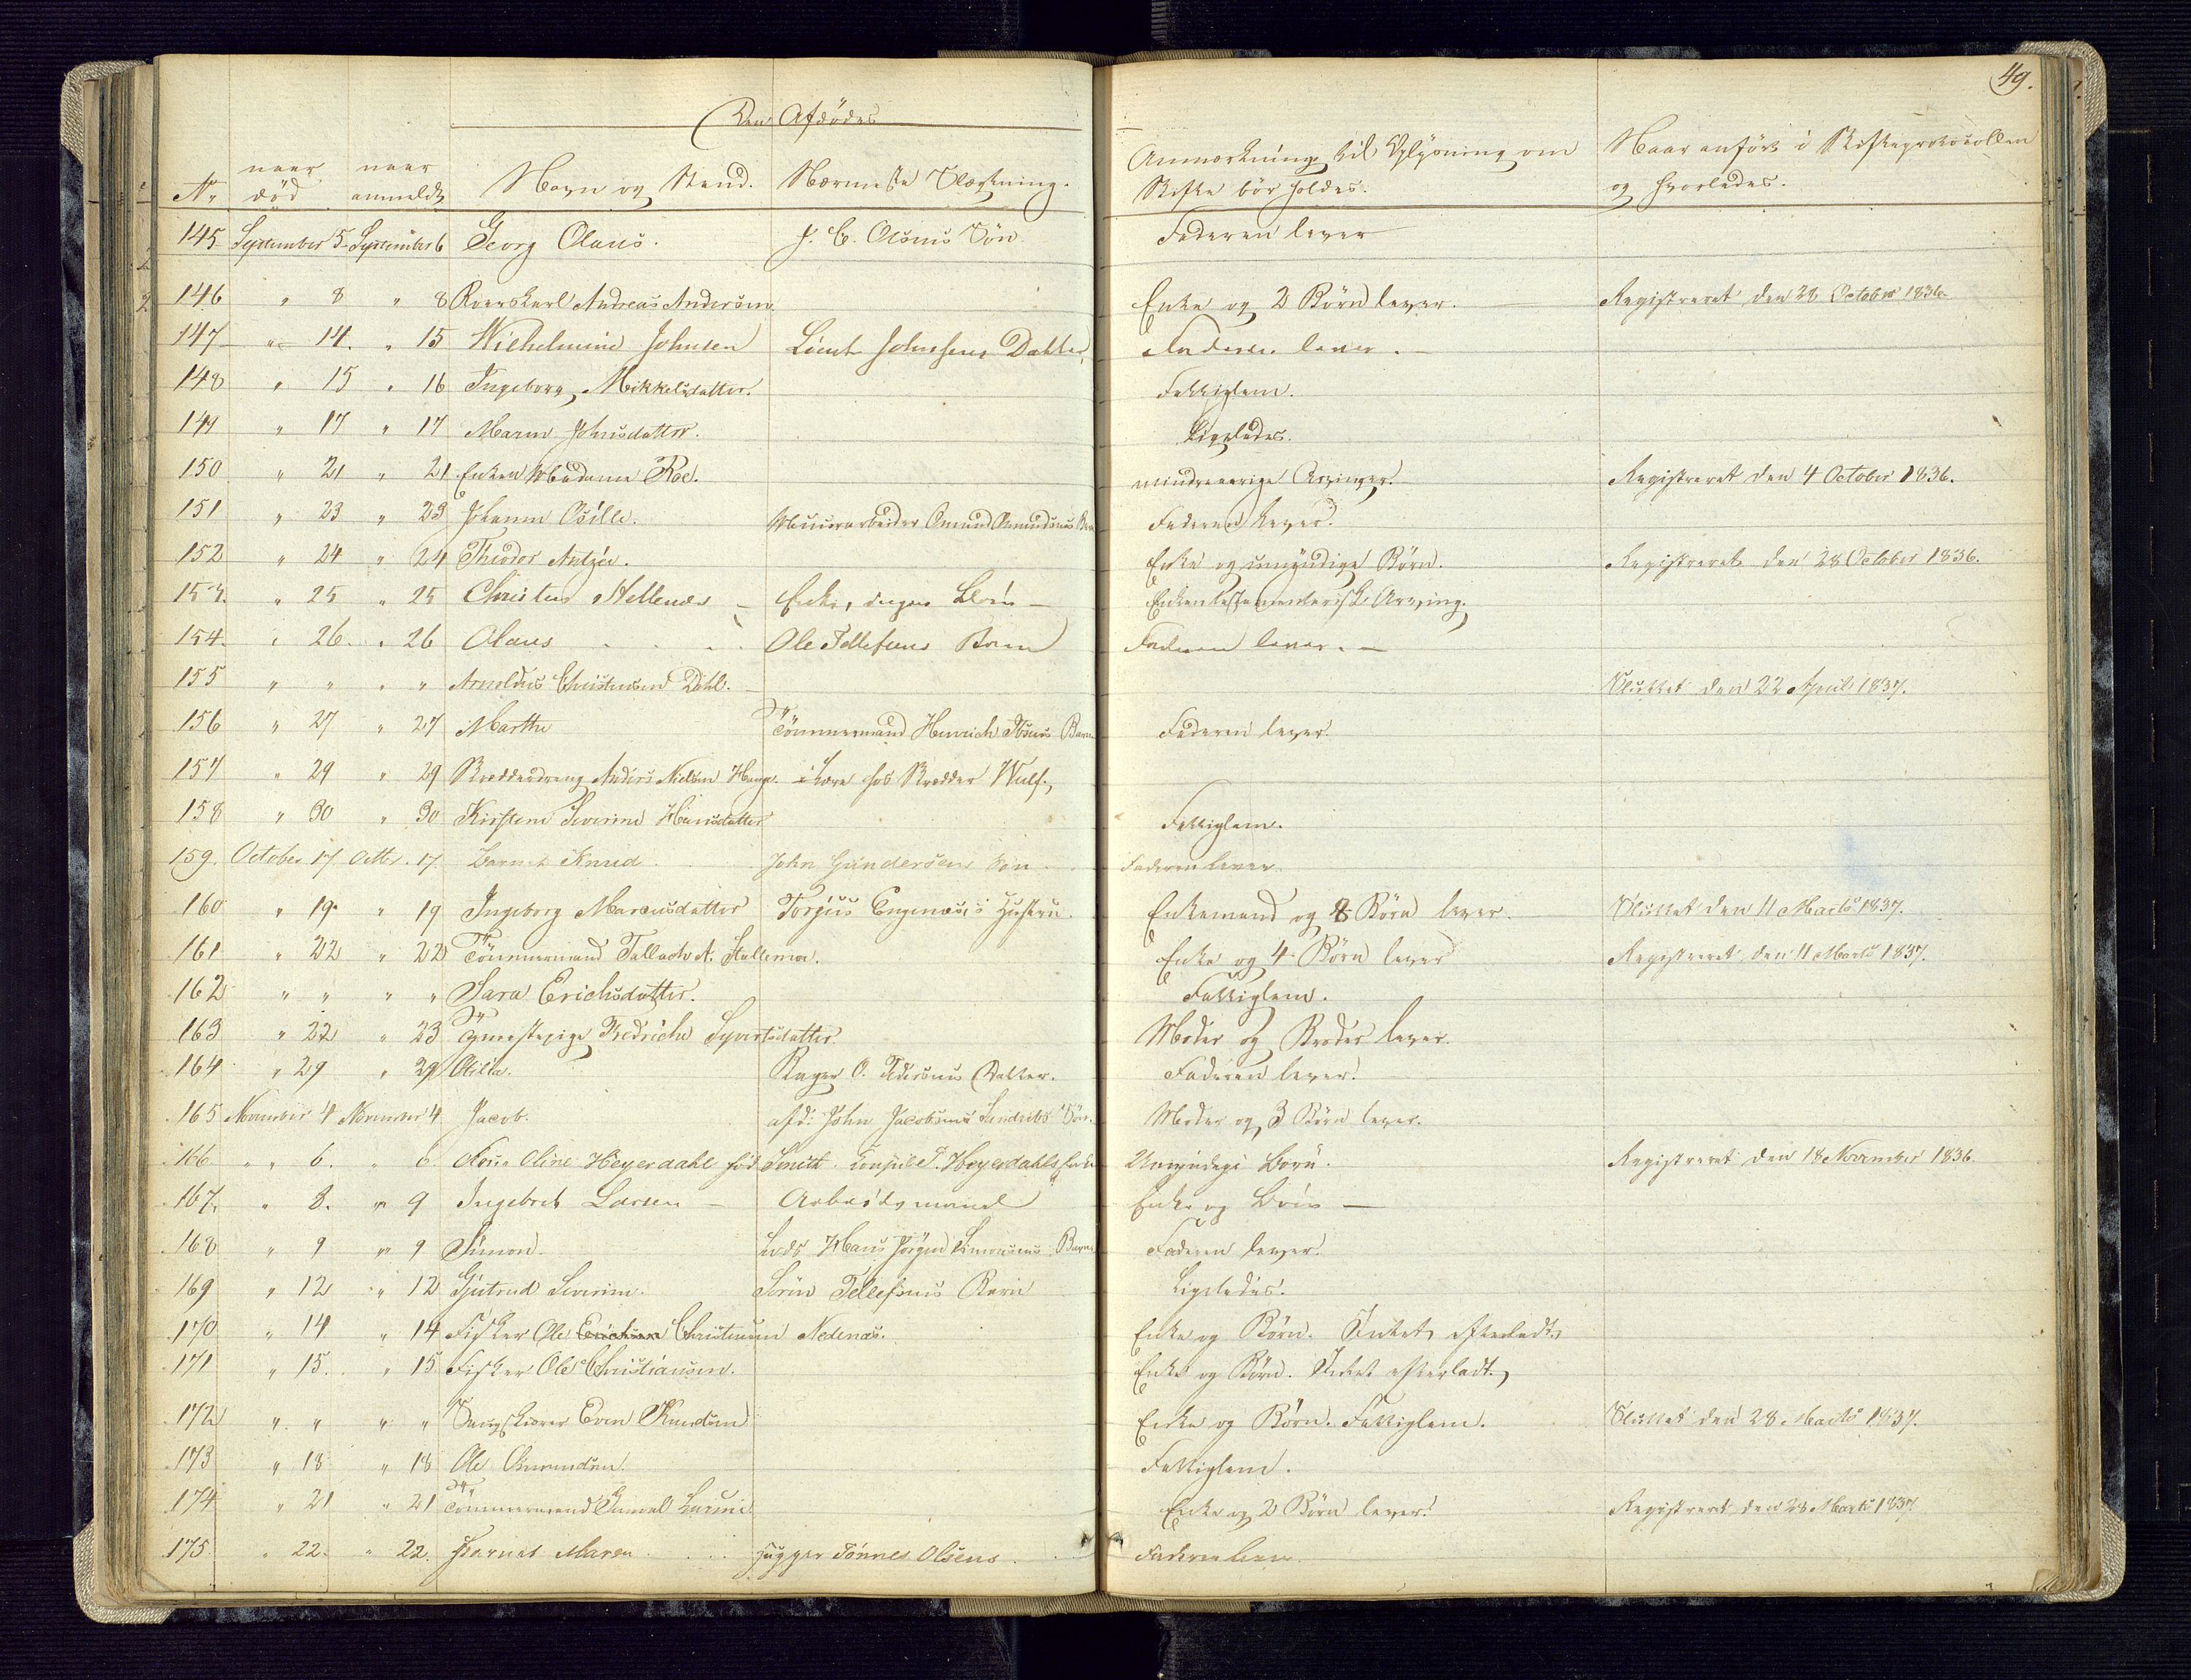 49.
Den Afdödes
No naar död naar anmeldt Navn og Stand. Nærmeste Slægtning. Anmærkning til Oplysning om Skifte bör holdes. Naar anfört i Skifteprotocollen og hvorledes.
145 September 5 September 6 Georg Olaus. J. C. Olsens Sön. Faderen lever
146 " 8 " 8 Andreas Andersen. Enke og 2 Börn lever. Registreret den 28 October 1836.
147 " 14. " 15 Wilhelmine Johnsen Lieut Johnsens Datter, Faderen lever.
148 " 15 " 16 Ingeborg Mikkelsdatter. Fattiglem.
149 " 17 " 17 Maren Johnsdatter. Ligeledes.
150 " 21 " 21 Enken Madame Roe. mindreaarige Arvinger. Registreret den 4 October 1836.
151 " 23 " 23 Johanne Osille. Muurarbeider Omund Omundsens Barn Faderen lever.
152 " 24 " 24 Theodor Antzée. Enke og umyndige Börn. Registreret den 28 October 1836.
153. " 25 " 25 Christen Hellenes Enke, ingen Börn Enken testamentarisk Arving.
154. " 26. " 26 Olaus Ole Tellefsens Barn Faderen lever.
155 " " " " Arnoldus Christensen Dahl. Sluttet den 22 April 1837.
156 " 27 " 27 Marthe Tömmermand Henrich Barn Faderen lever.
157 " 29 " 29 Skrædderdreng Anders Nielsen i Lære hos Skrædder Wulf.
158 " 30 " 30 Kirstine Severine Hansdatter Fattiglem.
159. October 17 Octbr. 17. Barnet Knud John Gundersens Sön Faderen lever.
160 " 19 " 19 Ingeborg Marcusdatter Torjus Hustru. Enkemand og 8 Börn lever. Sluttet den 11 Marts 1837.
161 " 22 " 22 Tömmermand Tallach A. Stallemoe. Enke og 4 Börn lever Registreret den 11 Marts 1837.
162 " " " " Sara Erichsdatter. Fattiglem.
163 " 22 " 23 Tjenestepige Fredriche Syvertsdatter Moder og Broder lever.
164 " 29 " 29 Olilia. Bager O. Datter. Faderen lever.
165 November 4 November 4 Jacob. afd: John Jacobsens Sön. Moder og 3 Börn lever.
166 " 6. " 6 Anne Oline Heyerdahl föd Smith. Consul P. Heyerdahls Enke Umyndige Börn. Registreret den 18 November 1836
167. " 8. " 9 Ingebret Larsen Arbeidsmand Enke og Börn
168 " 9 " 9 Simon. Lods Hans Jörgen Simonsens Barn Faderen lever.
169 " 12 " 12 Gjertrud Severine. Sören Tellefsens Barn Ligeledes.
170 " 14 " 14 Fisker Ole Erichsen Christensen Nedenæs. Enke og Börn. Intet efterladt.
171 " 15. " 15 Fisker Ole Christiansen. Enke og Börn. Intet efterladt.
172 " " " " Even Knudsen Enke og Börn. Fattiglem. Sluttet den 28 Marts 1837.
173 " 18 " 18 Ole Omundsen. Fattiglem.
174 " 21 " 21 Tömmermand Larsen Enke og 2 Börn lever. Registreret den 28 Marts 1837
175 " 22. " 22. Barnet Maren Tönnes Olsens Faderen lever.